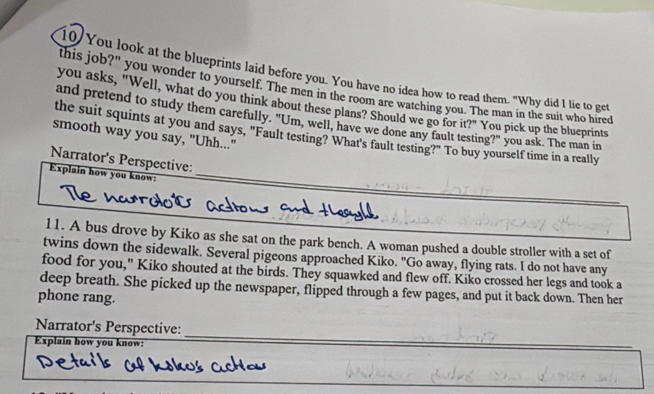 10 You look at the blueprints laid before you. You have no idea how to read them. "Why did I lie to get
this job?" you wonder to yourself. The men in the room are watching you. The man in the suit who hired
you asks, "Well, what do you think about these plans? Should we go for it?" You pick up the blueprints
and pretend to study them carefully. "Um, well, have we done any fault testing?" you ask. The man in
the suit squints at you and says, "Fault testing? What's fault testing?" To buy yourself time in a really
smooth way you say, "Uhh..."
Narrator's Perspective:
Explain how you know:
The narrator's actions and thought
11. A bus drove by Kiko as she sat on the park bench. A woman pushed a double stroller with a set of
twins down the sidewalk. Several pigeons approached Kiko. "Go away, flying rats. I do not have any
food for you," Kiko shouted at the birds. They squawked and flew off. Kiko crossed her legs and took a
deep breath. She picked up the newspaper, flipped through a few pages, and put it back down. Then her
phone rang.
Narrator's Perspective:
Explain how you know:
Details of koko's action